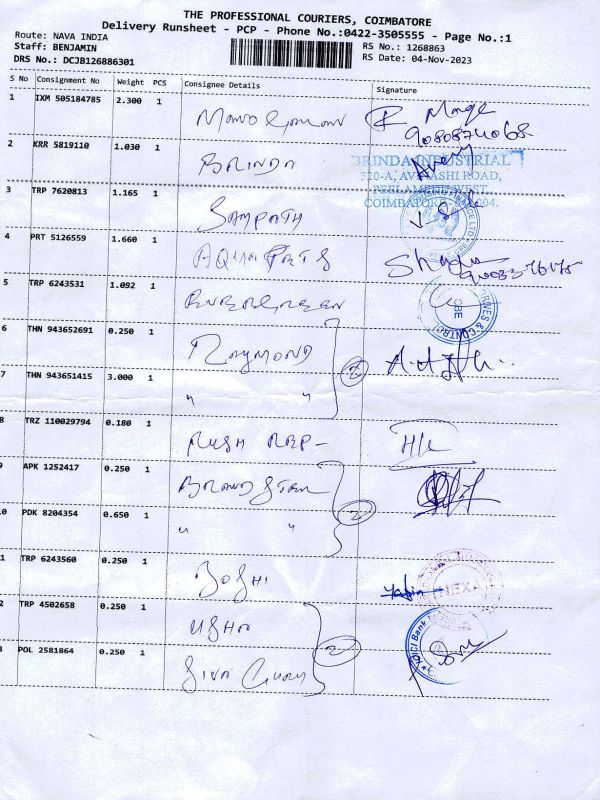 THE PROFESSIONAL COURIERS, COIMBATORE
Delivery Runsheet - PCP - Phone No.:0422-3505555 - Page No.:1
Route: NAVA INDIA
Staff: BENJAMIN
DRS No.: DCJB126886301
RS No.: 1268863
RS Date: 04-Nov-2023
S No Consignment No Weight PCS Consignee Details Signature
1 IXM 505184785 2.300 1
2 KRR 5819110 1.030 1 BRINDA
BRINDA INDUSTRIAL
520-A, AVINASHI ROAD,
PEELAMEDU WEST,
COIMBATORE - 004.
3 TRP 7620813 1.165 1 SAMPATH
4 PRT 5126559 1.660 1
5 TRP 6243531 1.092 1 EVERGREEN
CBE
6 THN 943652691 0.250 1 RAYMOND 2
7 THN 943651415 3.000 1 " "
8 TRZ 110029794 0.180 1 H/L
9 APK 1252417 0.250 1 BRAND STAR 2
10 PDK 8204354 0.650 1 " "
1 TRP 6243560 0.250 1 JOSHI
NEXA
2 TRP 4502658 0.250 1 USHA 2
ICICI Bank
3 POL 2581864 0.250 1 SIVA